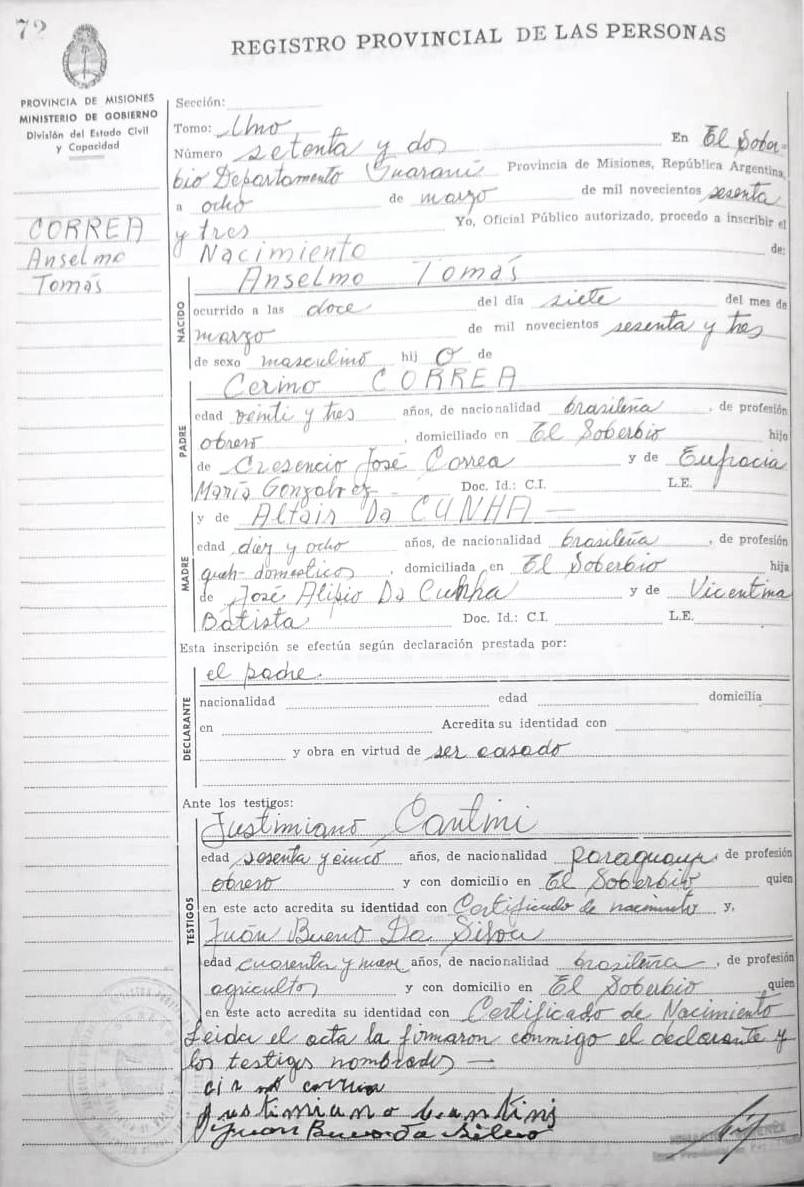 72
REGISTRO PROVINCIAL DE LAS PERSONAS
PROVINCIA DE MISIONES
MINISTERIO DE GOBIERNO
División del Estado Civil
y Capacidad
CORREA
Anselmo
Tomás
Sección:
Tomo: Uno
Número setenta y dos En El Sober
bio Departamento Guaraní Provincia de Misiones, República Argentina,
a ocho de marzo de mil novecientos sesenta
y tres Yo, Oficial Público autorizado, procedo a inscribir el
Nacimiento de:
NACIDO
Anselmo Tomás
ocurrido a las doce del día siete del mes de
marzo de mil novecientos sesenta y tres
de sexo masculino hij o de
PADRE
Cermo CORREA
edad veinti y tres años, de nacionalidad brasileña, de profesión
obrero, domiciliado en El Soberbio hijo
de Cresencio José Correa y de Eufracia
María Gonzalvez Doc. Id.: C.I. L.E.
MADRE
y de Altair Da CUNHA —
edad diez y ocho años, de nacionalidad brasileña, de profesión
queh- domesticos, domiciliada en El Soberbio hija
de José Alipio Da Cunha y de Vicentina
Batista Doc. Id.: C.I. L.E.
Esta inscripción se efectúa según declaración prestada por:
DECLARANTE
el padre.
nacionalidad edad domicilia
en Acredita su identidad con
y obra en virtud de ser casado
Ante los testigos:
TESTIGOS
Justimiano Cantini
edad sesenta y cinco años, de nacionalidad paraguaya, de profesión
obrero y con domicilio en El Soberbio quien
en este acto acredita su identidad con Certificado de nacimiento y,
Juan Bueno Da Silva
edad cuarenta y nueve años, de nacionalidad brasileña, de profesión
agricultor y con domicilio en El Soberbio, quien
en este acto acredita su identidad con Certificado de Nacimiento
Leida el acta la firmaron conmigo el declarante y
los testigos nombrados —
correa
Justimiano Cantini
Juan Bueno Da Silva